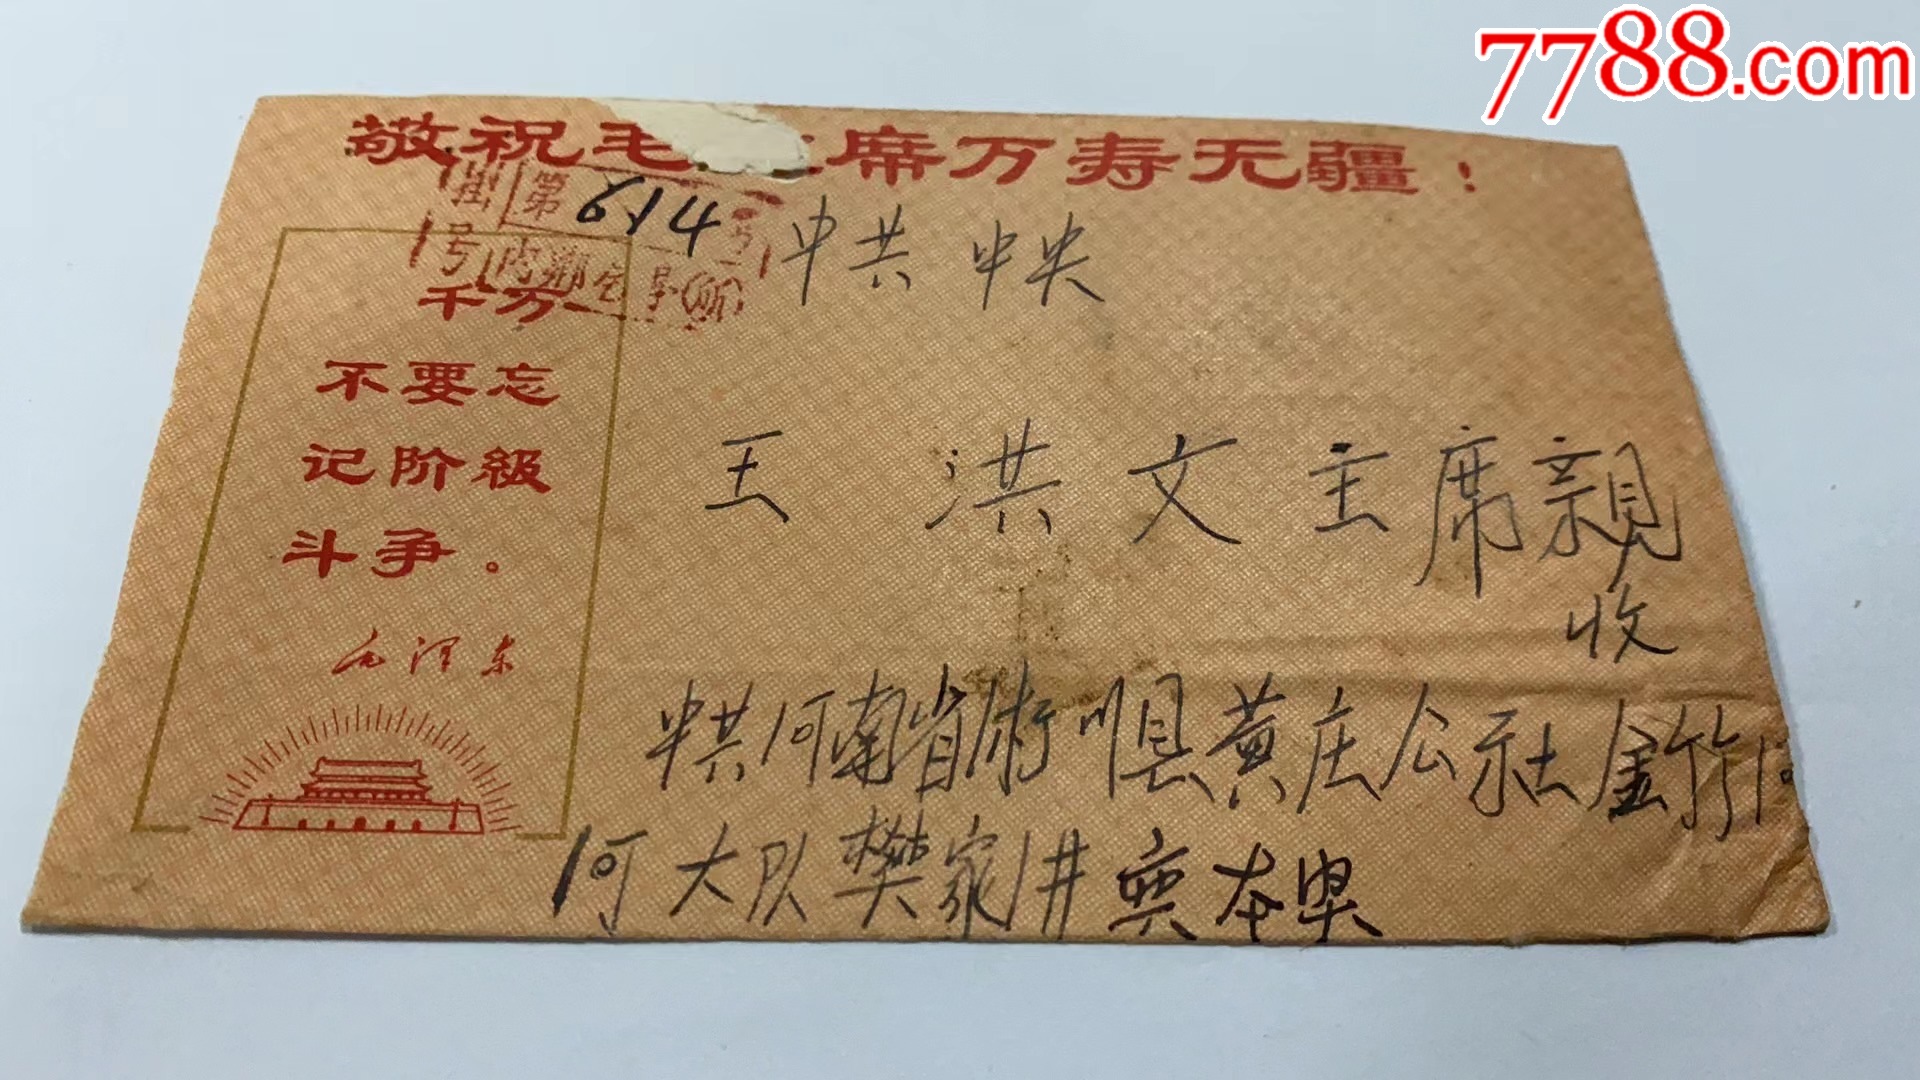 7788.com
敬祝毛主席万寿无疆！
挂 第 614 号
号 内乡 所
中共中央
千万
不要忘
记阶级
斗争。
毛泽东
王洪文主席親
收
中共河南省淅川县黄庄公社金竹河
河大队樊家井 本